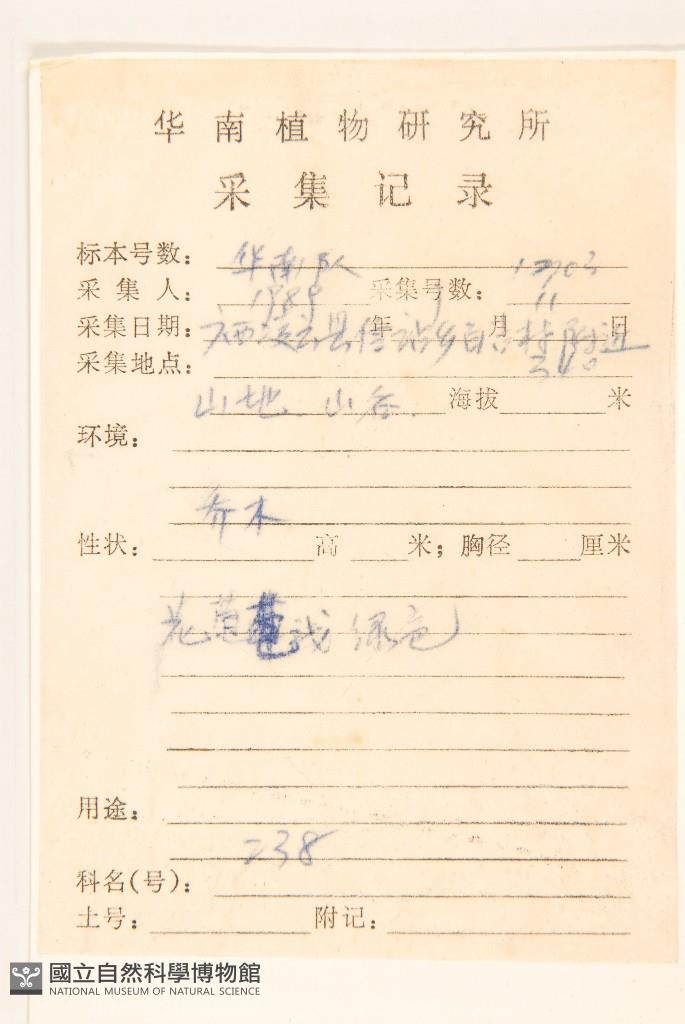 华南植物研究所
采集记录
标本号数：
华南队
采集人： 1989 采集号数： 11
采集日期： 年 月 日
县 乡 村附近
采集地点： 340
山地、山谷. 海拔 米
环境：
乔木
性状： 高 米；胸径 厘米
花 绿色
用途：
238
科名(号)：
土号： 附记：
國立自然科學博物館
NATIONAL MUSEUM OF NATURAL SCIENCE